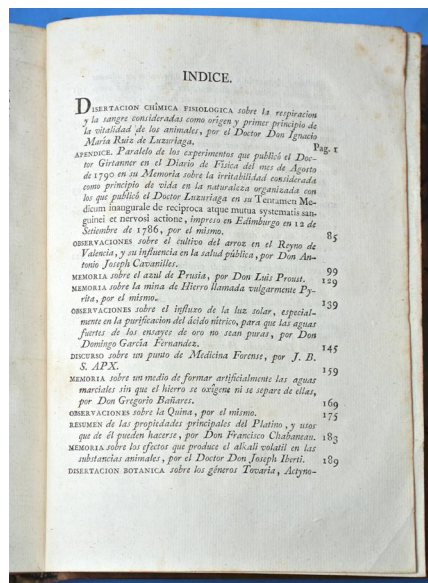 INDICE.
DISERTACION CHÎMICA FISIOLOGICA sobre la respiracion
y la sangre consideradas como origen y primer principio de
la vitalidad de los animales, por el Doctor Don Ignacio
Maria Ruiz de Luzuriaga. Pag. 1
APENDICE. Paralelo de los experimentos que publicó el Doc-
tor Girtanner en el Diario de Fisica del mes de Agosto
de 1790 en su Memoria sobre la irritabilidad considerada
como principio de vida en la naturaleza organizada con
los que publicó el Doctor Luzuriaga en su Tentamen Me-
dicum inaugurale de reciproca atque mutua systematis san-
guinei et nervosi actione, impreso en Edimburgo en 12 de
Setiembre de 1786, por el mismo. 85
OBSERVACIONES sobre el cultivo del arroz en el Reyno de
Valencia, y su influencia en la salud pública, por Don An-
tonio Joseph Cavanilles. 99
MEMORIA sobre el azul de Prusia, por Don Luis Proust. 129
MEMORIA sobre la mina de Hierro llamada vulgarmente Py-
rita, por el mismo. 139
OBSERVACIONES sobre el influxo de la luz solar, especial-
mente en la purificacion del ácido nítrico, para que las aguas
fuertes de los ensayes de oro no sean puras, por Don
Domingo García Fernandez. 145
DISCURSO sobre un punto de Medicina Forense, por J. B.
S. APX. 159
MEMORIA sobre un medio de formar artificialmente las aguas
marciales sin que el hierro se oxîgene ni se separe de ellas,
por Don Gregorio Bañares. 169
OBSERVACIONES sobre la Quina, por el mismo. 175
RESUMEN de las propiedades principales del Platino, y usos
que de él pueden hacerse, por Don Francisco Chabaneau. 183
MEMORIA sobre los efectos que produce el alkali volatil en las
substancias animales, por el Doctor Don Joseph Iberti. 189
DISERTACION BOTANICA sobre los géneros Tovaria, Actyno-